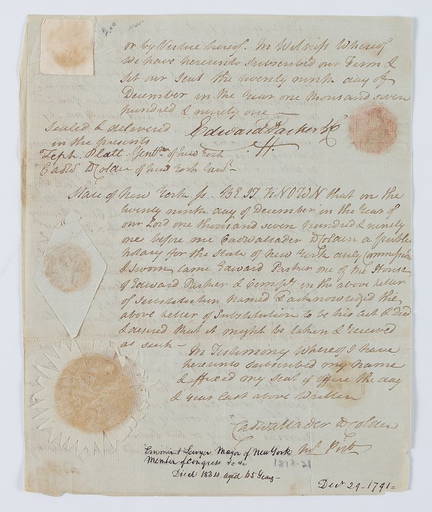 or by Virtue hereof. In Witness Whereof
we have hereunto subscribed our Firm &
set our Seal the twenty ninth day of
December in the Year one thousand seven
hundred & ninety one —
Sealed & delivered
in the presents
Edward Parker & Co
Zeph. Platt Gent'n of New York
Cad'r D. Colden of New York Gent.
State of New York Ss. BE IT KNOWN that on the
twenty ninth day of December in the Year of
our Lord one thousand seven hundred & ninety
one before me Cadwallader D Colden a Public
Notary for the State of New York duly Commission'd
& Sworn came Edward Parker one of the House
of Edward Parker & Comp'y in the above letter
of Substitution named & acknowledged the
above letter of Substitution to be his Act & Deed
& desired that it might be taken & received
as such —
In Testimony Whereof I have
hereunto subscribed my name
& affixed my Seal of office the day
& Year last above Written
Cadwallader D Colden
Not. Pub.
Eminent Lawyer Mayor of New York
Member of Congress &c &c
1818-21
Died 1834 aged 65 Years —
Dec 29-1791=